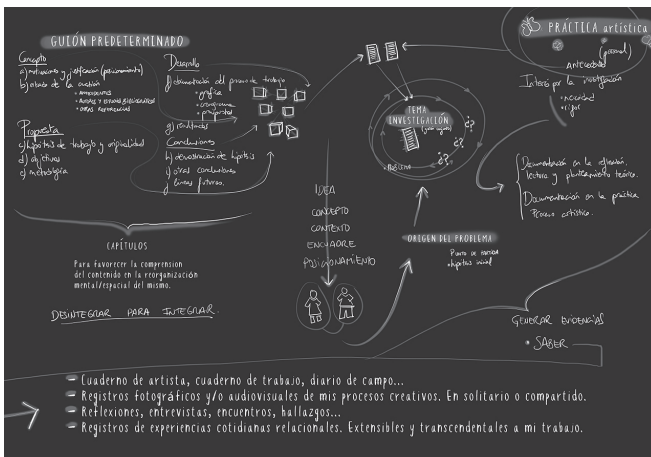 GUIÓN PREDETERMINADO
Concepto
a) motivaciones y justificación (posicionamiento)
b) estado de la cuestión
• ANTECEDENTES
• AUTORES Y ESTUDIOS BIBLIOGRÁFICOS
• OTRAS REFERENCIAS
Propuesta
c) hipótesis de trabajo y originalidad
d) objetivos
e) metodología
Desarrollo
f) documentación del proceso de trabajo
• gráfica
• cronograma
g) resultados
Conclusiones
h) demostración de hipótesis
i) otras conclusiones
j) líneas futuras.
CAPÍTULOS
Para favorecer la comprension
del contenido en la reorganización
mental/espacial del mismo.
DESINTEGRAR PARA INTEGRAR.
IDEA
CONCEPTO
CONTEXTO
ENCUADRE
POSICIONAMIENTO
TEMA
INVESTIGACIÓN
¿?
¿?
¿?
ORIGEN DEL PROBLEMA
Punto de partida
• hipótesis inicial
PRÁCTICA artística
(personal)
ANTECEDENTES
Interés por la investigación
• necesidad
• rigor
Documentación en la reflexión,
lectura y planteamiento teórico.
Documentación en la práctica
Proceso artístico.
GENERAR EVIDENCIAS
• SABER
- Cuaderno de artista, cuaderno de trabajo, diario de campo...
- Registros fotográficos y/o audiovisuales de mis procesos creativos. En solitario o compartido.
- Reflexiones, entrevistas, encuentros, hallazgos...
- Registros de experiencias cotidianas relacionales. Extensibles y transcendentales a mi trabajo.